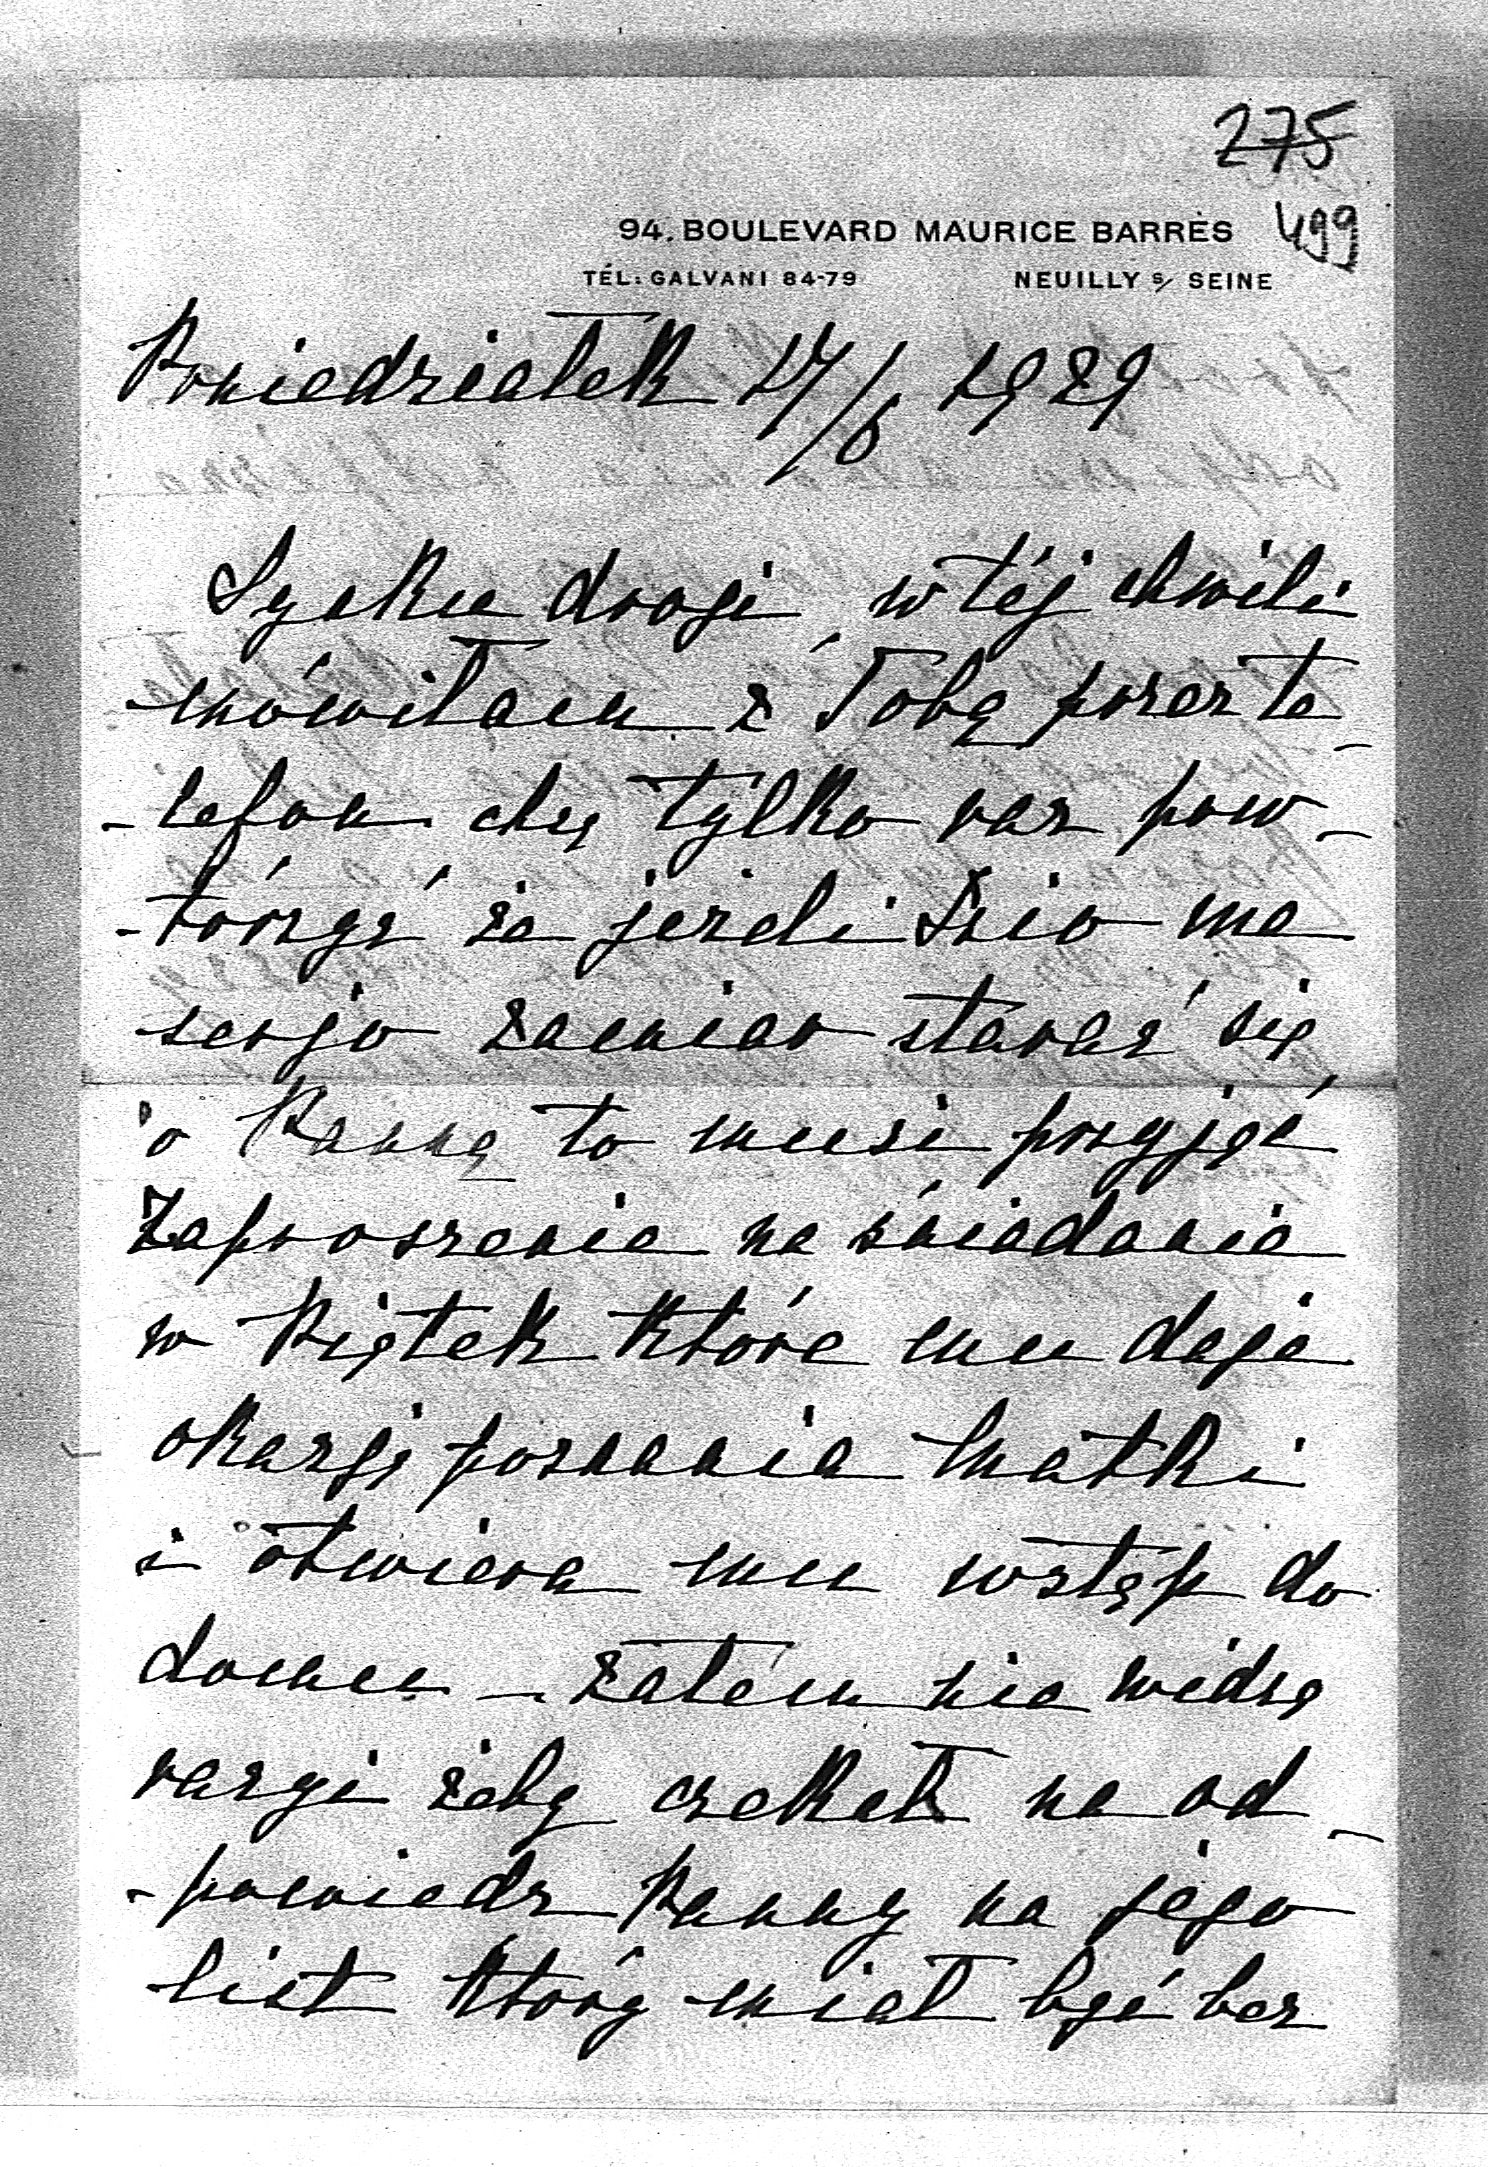 275
499
94, BOULEVARD MAURICE BARRÈS
TÉL: GALVANI 84-79 NEUILLY S/ SEINE
Poniedziałek 17/6 1929
Synku drogi, w téj chwili
mówiłam z Tobą przez te-
-lefon chcę tylko raz pow-
-tórzyć że jeżeli ma
serjo zamiar starać się
o Pannę to musi przyjąć
zaproszenie na śniadanie
w Piątek które mu daje
okazję poznania Matki
i otwiera mu wstęp do
domu – zatém nie widzę
racyi żeby czekał na od-
-powiedz Panny na jego
list który miał być bez